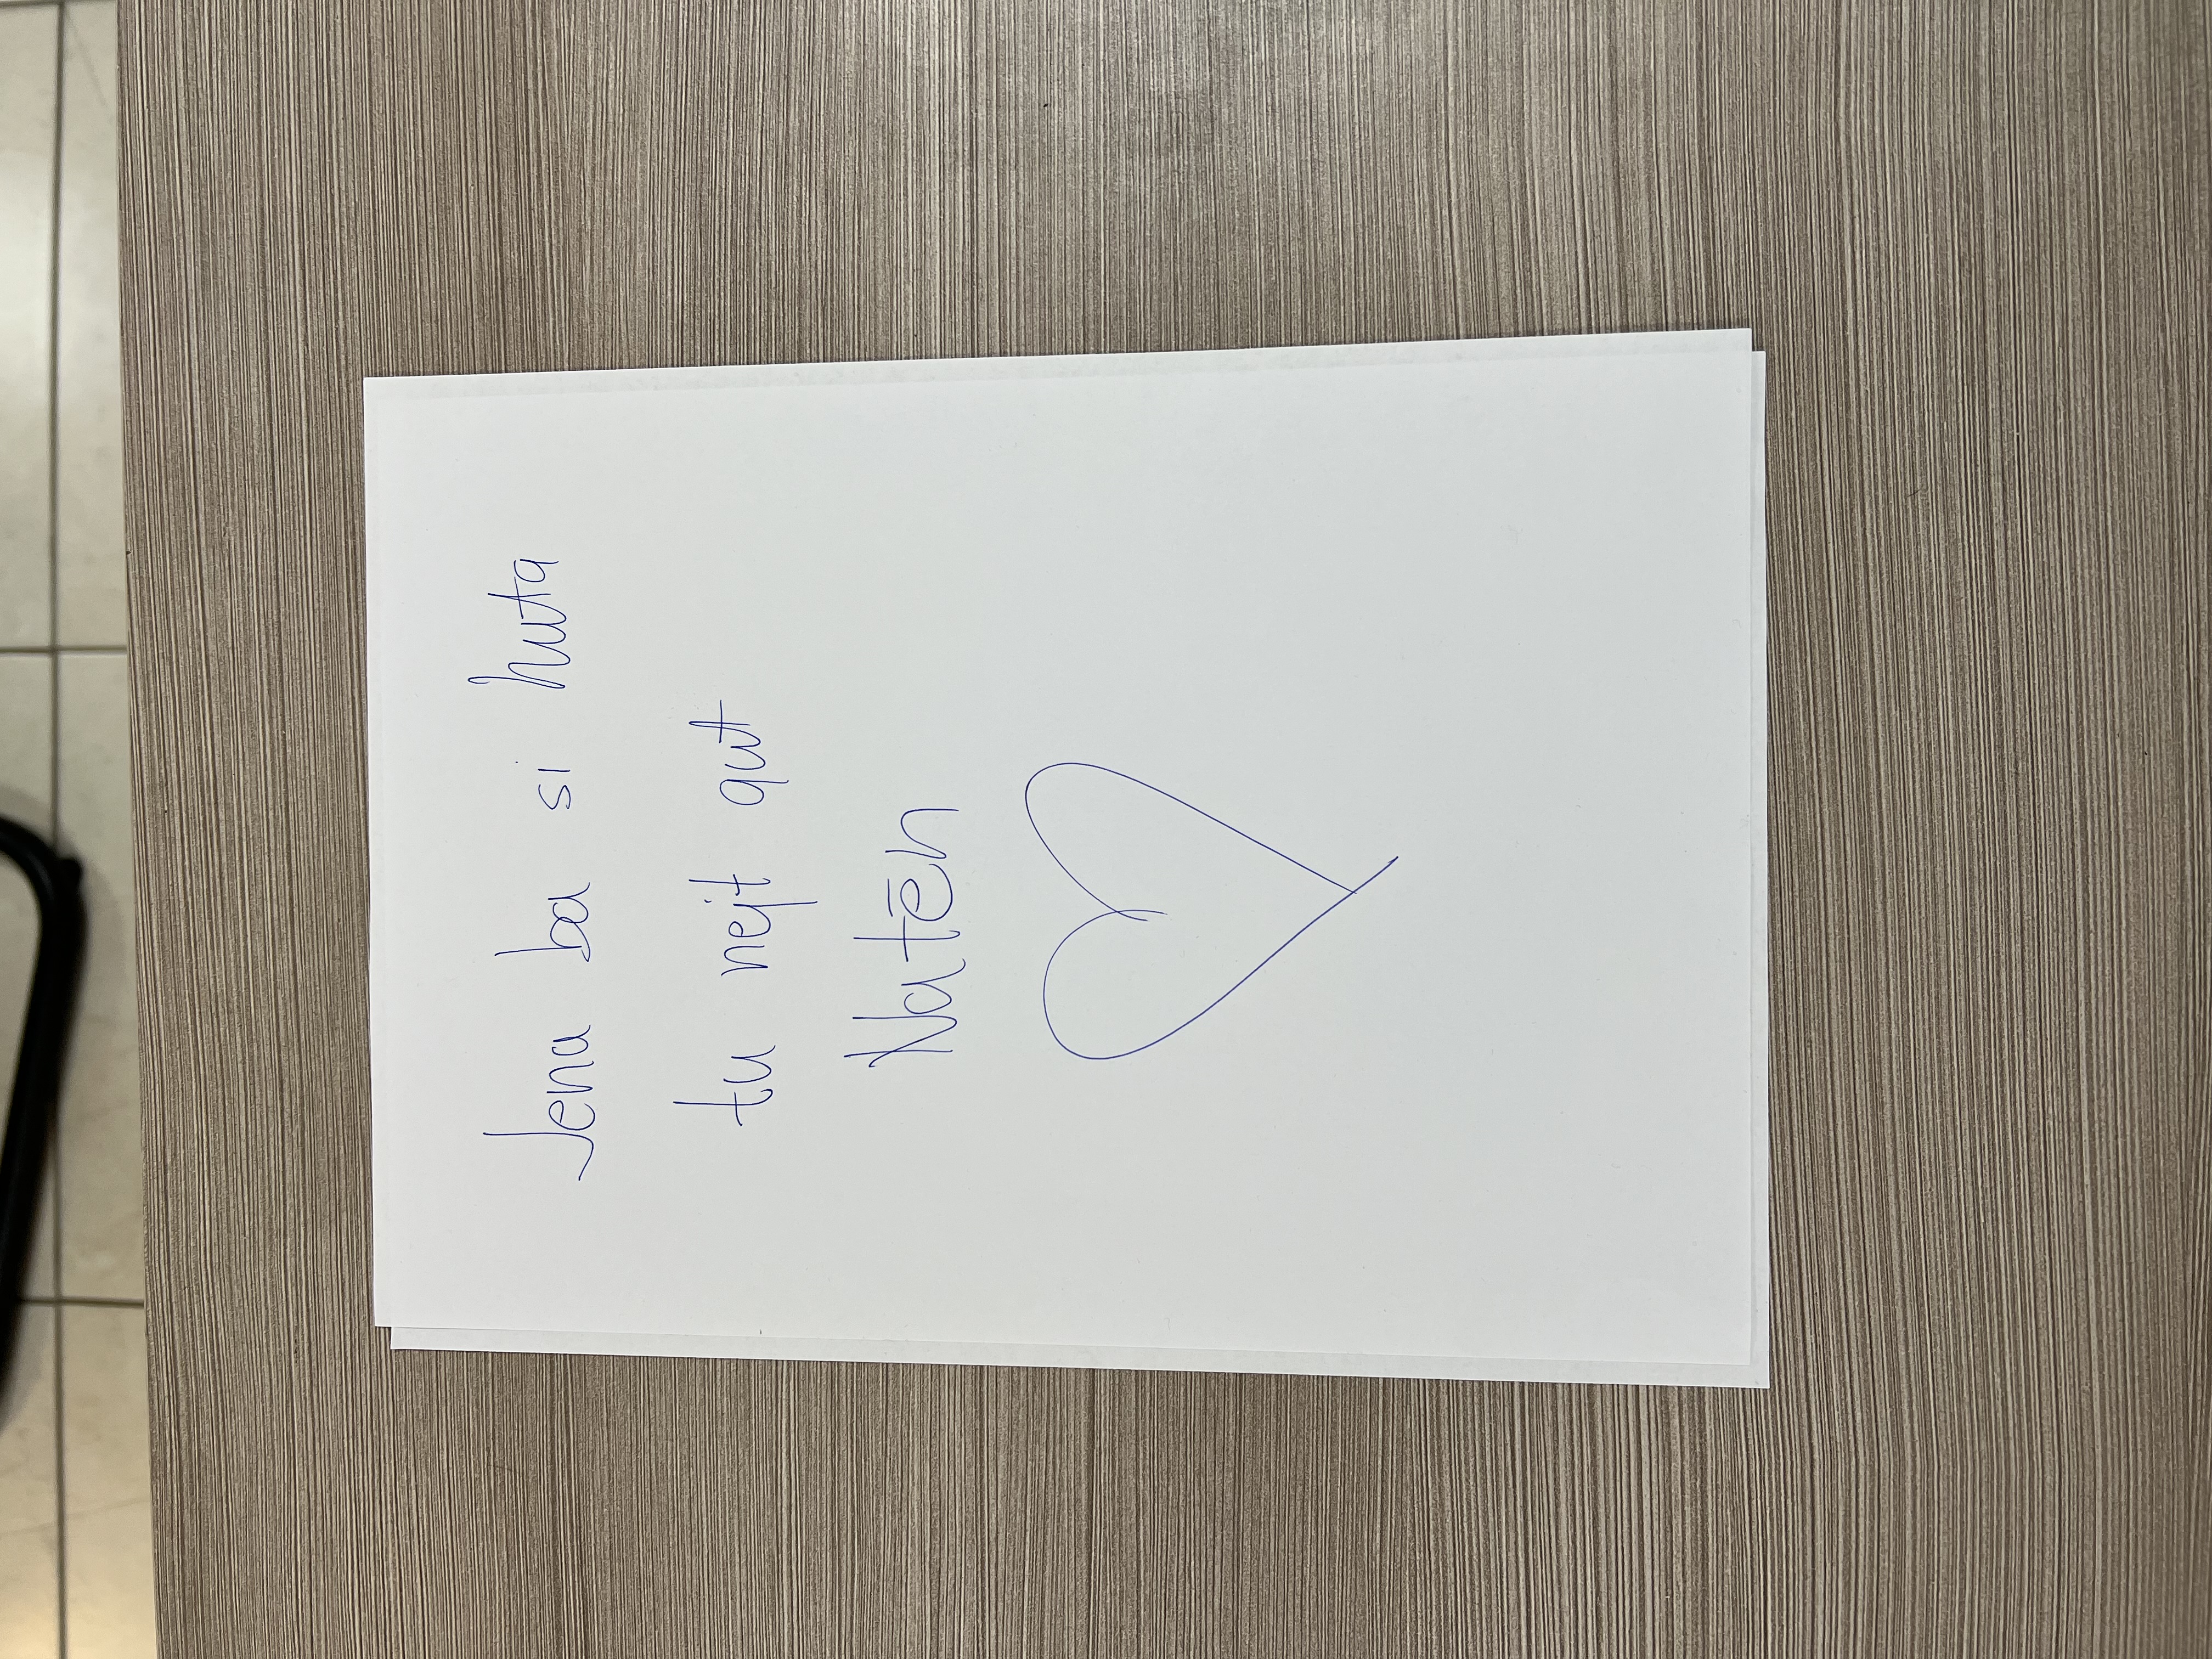 Jena ba si huta
tu nejt qut
Natēn